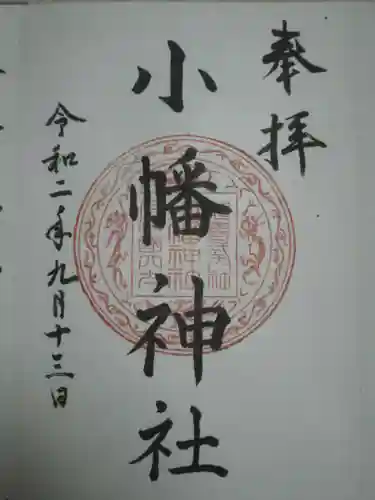 奉拝
小幡神社
令和二年九月十三日